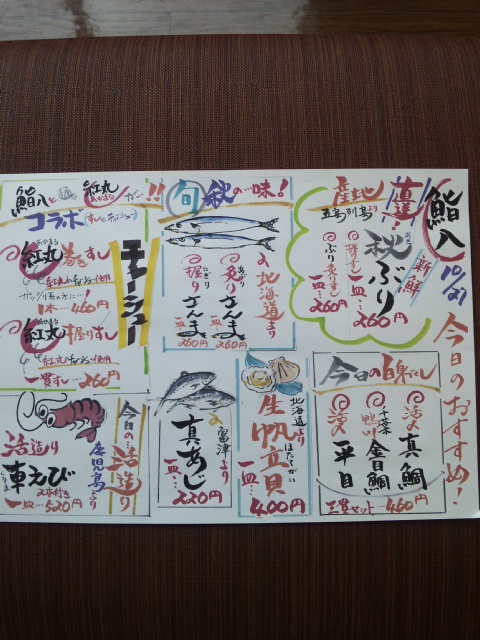 鮨八
10/21
今日のおすすめ!
産地直送!
五島列島より
新鮮
秋ぶり
一皿…260円
ぶり炙りすし
一皿…260円
今日の白身すし
活〆真鯛
千葉鴨川金目鯛
活〆平目
三貫セット…460円
旬秋の味!
北海道より
炙りさんま
一皿…260円
握りさんま
一皿…260円
北海道より
生帆立貝
ほたてがい
一皿…400円
富津より
真あじ
一皿…220円
鮨八と麺紅丸が…!!
コラボ
チャーシュー
紅丸巻すし
1本…460円
紅丸握りすし
一貫すし…260円
今日の活造り
鹿児島より
活造り
車えび
一皿…520円